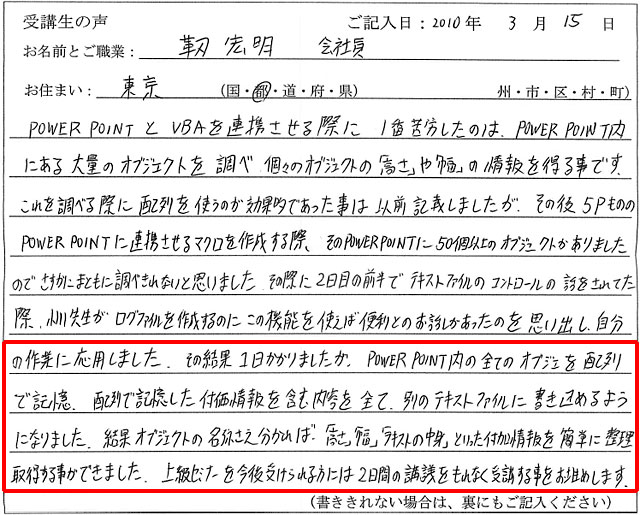 受講生の声 ご記入日：2010年 3月 15日
お名前とご職業： 靭 宏明 会社員
お住まい： 東京 (国・都・道・府・県) 州・市・区・村・町)
POWER POINTとVBAを連携させる際に 1番苦労したのは、POWER POINT内
にある大量のオブジェクトを調べ 個々のオブジェクトの「高さ」や「幅」の情報を得る事です.
これを調べる際に配列を使うのが効果的であった事は以前記載しましたが、その後5Pものの
POWER POINTに連携させるマクロを作成する際、そのPOWERPOINTに50個以上のオブジェクトがありました
のでさすがにまともに調べきれないと思いました. その際に2日目の前半でテキストファイルのコントロールの話をされてた
際、小川先生がログファイルを作成するのにこの機能を使えば便利とのお話しがあったのを思い出し、自分
の作業に応用しました. その結果1日かかりましたが、POWER POINT内の全てのオブジェを配列
で記憶、配列で記憶した付価情報を含む内容を全て、別のテキストファイルに書き込めるよう
になりました. 結果オブジェクトの名称さえ分かれば「高さ」「幅」「テキストの中身」といった付加情報を簡単に整理
取得する事ができました. 上級ビデオを今後受けられる方には2日間の講議をもれなく受講する事をお進めします.
(書ききれない場合は、裏にもご記入ください)